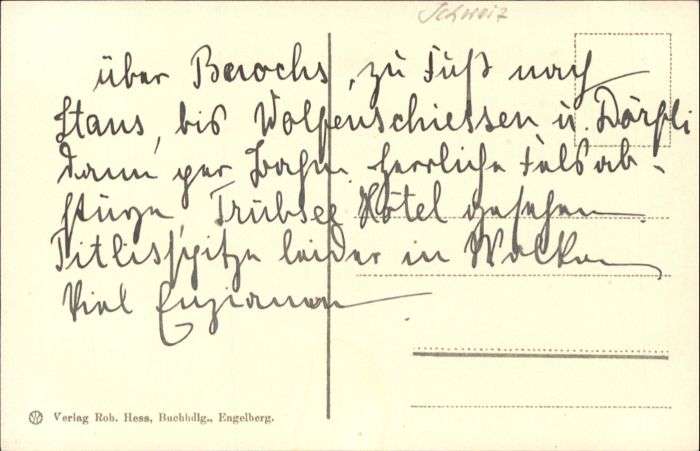 Schweiz
über Buochs, zu Fuß nach
Stans, bis Wolfenschiessen u. Dörfli
dann per Bahn. herrliche Felsab-
stürze, Trübsee Hôtel gesehen.
Titlisspitze leider in Wolken
Viel Enzianen
Verlag Rob. Hess, Buchhdlg., Engelberg.